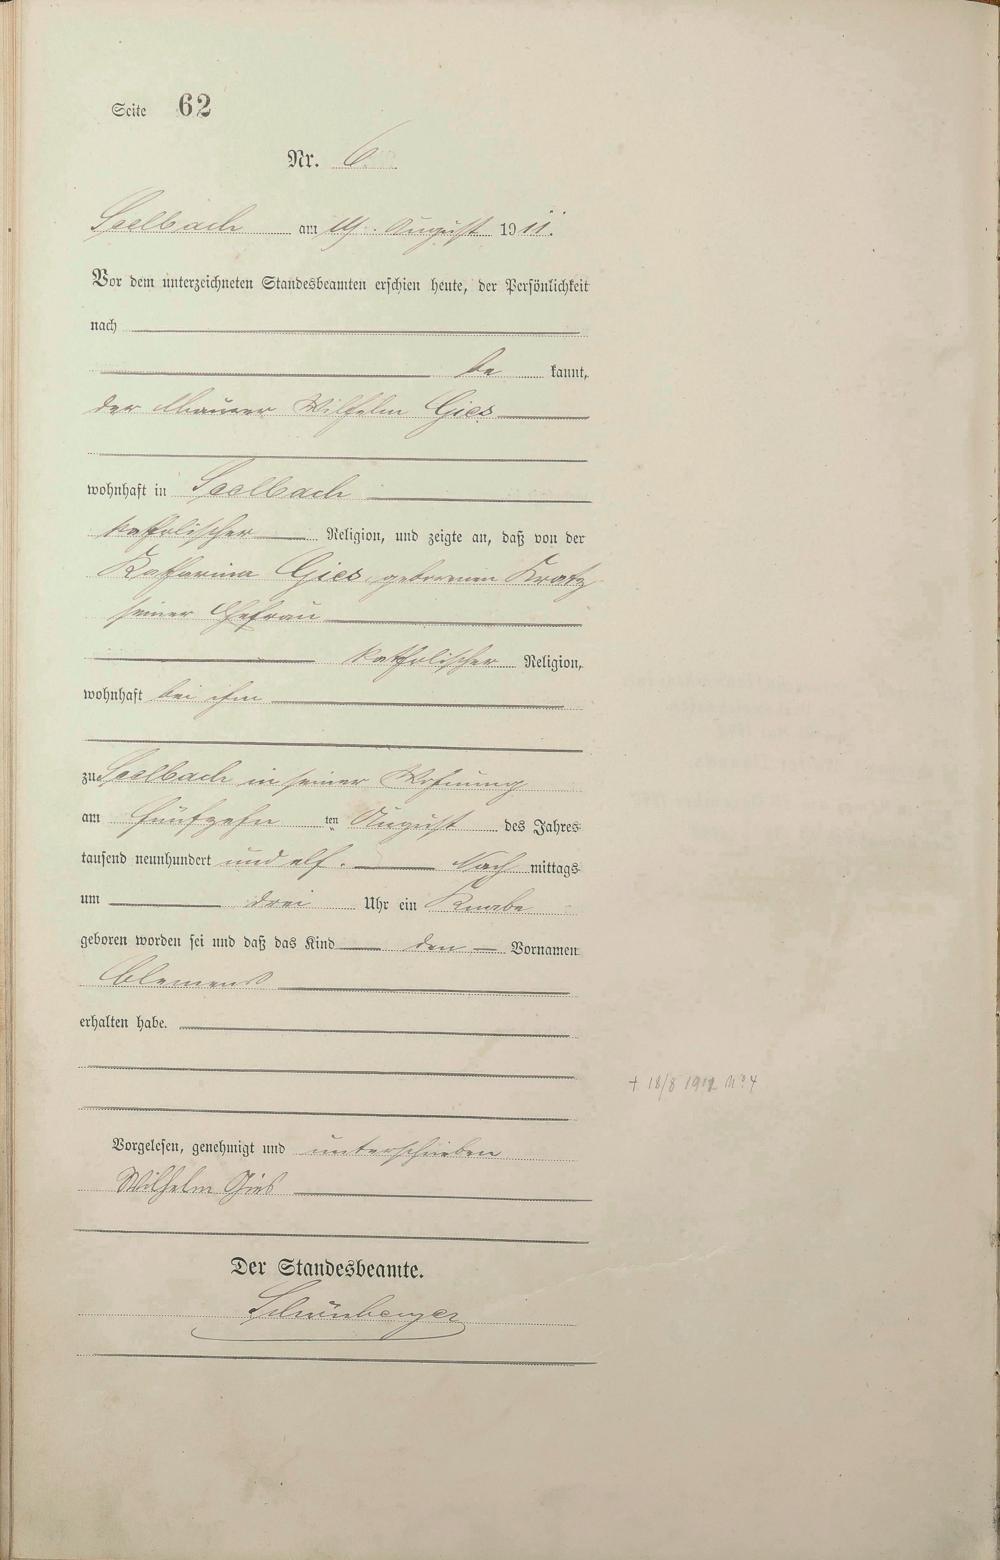 Seite 62
Nr. 6.
Seelbach am 19. August 1911.
Vor dem unterzeichneten Standesbeamten erschien heute, der Persönlichkeit
nach
be kannt,
der Maurer Wilhelm Gies
wohnhaft in Seelbach
katholischer Religion, und zeigte an, daß von der
Katharina Gies, geborenen Kratz
seiner Ehefrau
katholischer Religion,
wohnhaft bei ihm
zu Seelbach in seiner Wohnung
am fünfzehn ten August des Jahres
tausend neunhundert und elf. Nach mittags
um drei Uhr ein Knabe
geboren worden sei und daß das Kind den Vornamen
Clemens
erhalten habe.
† 18/8 1912 No. 4
Vorgelesen, genehmigt und unterschrieben
Wilhelm Gies
Der Standesbeamte.